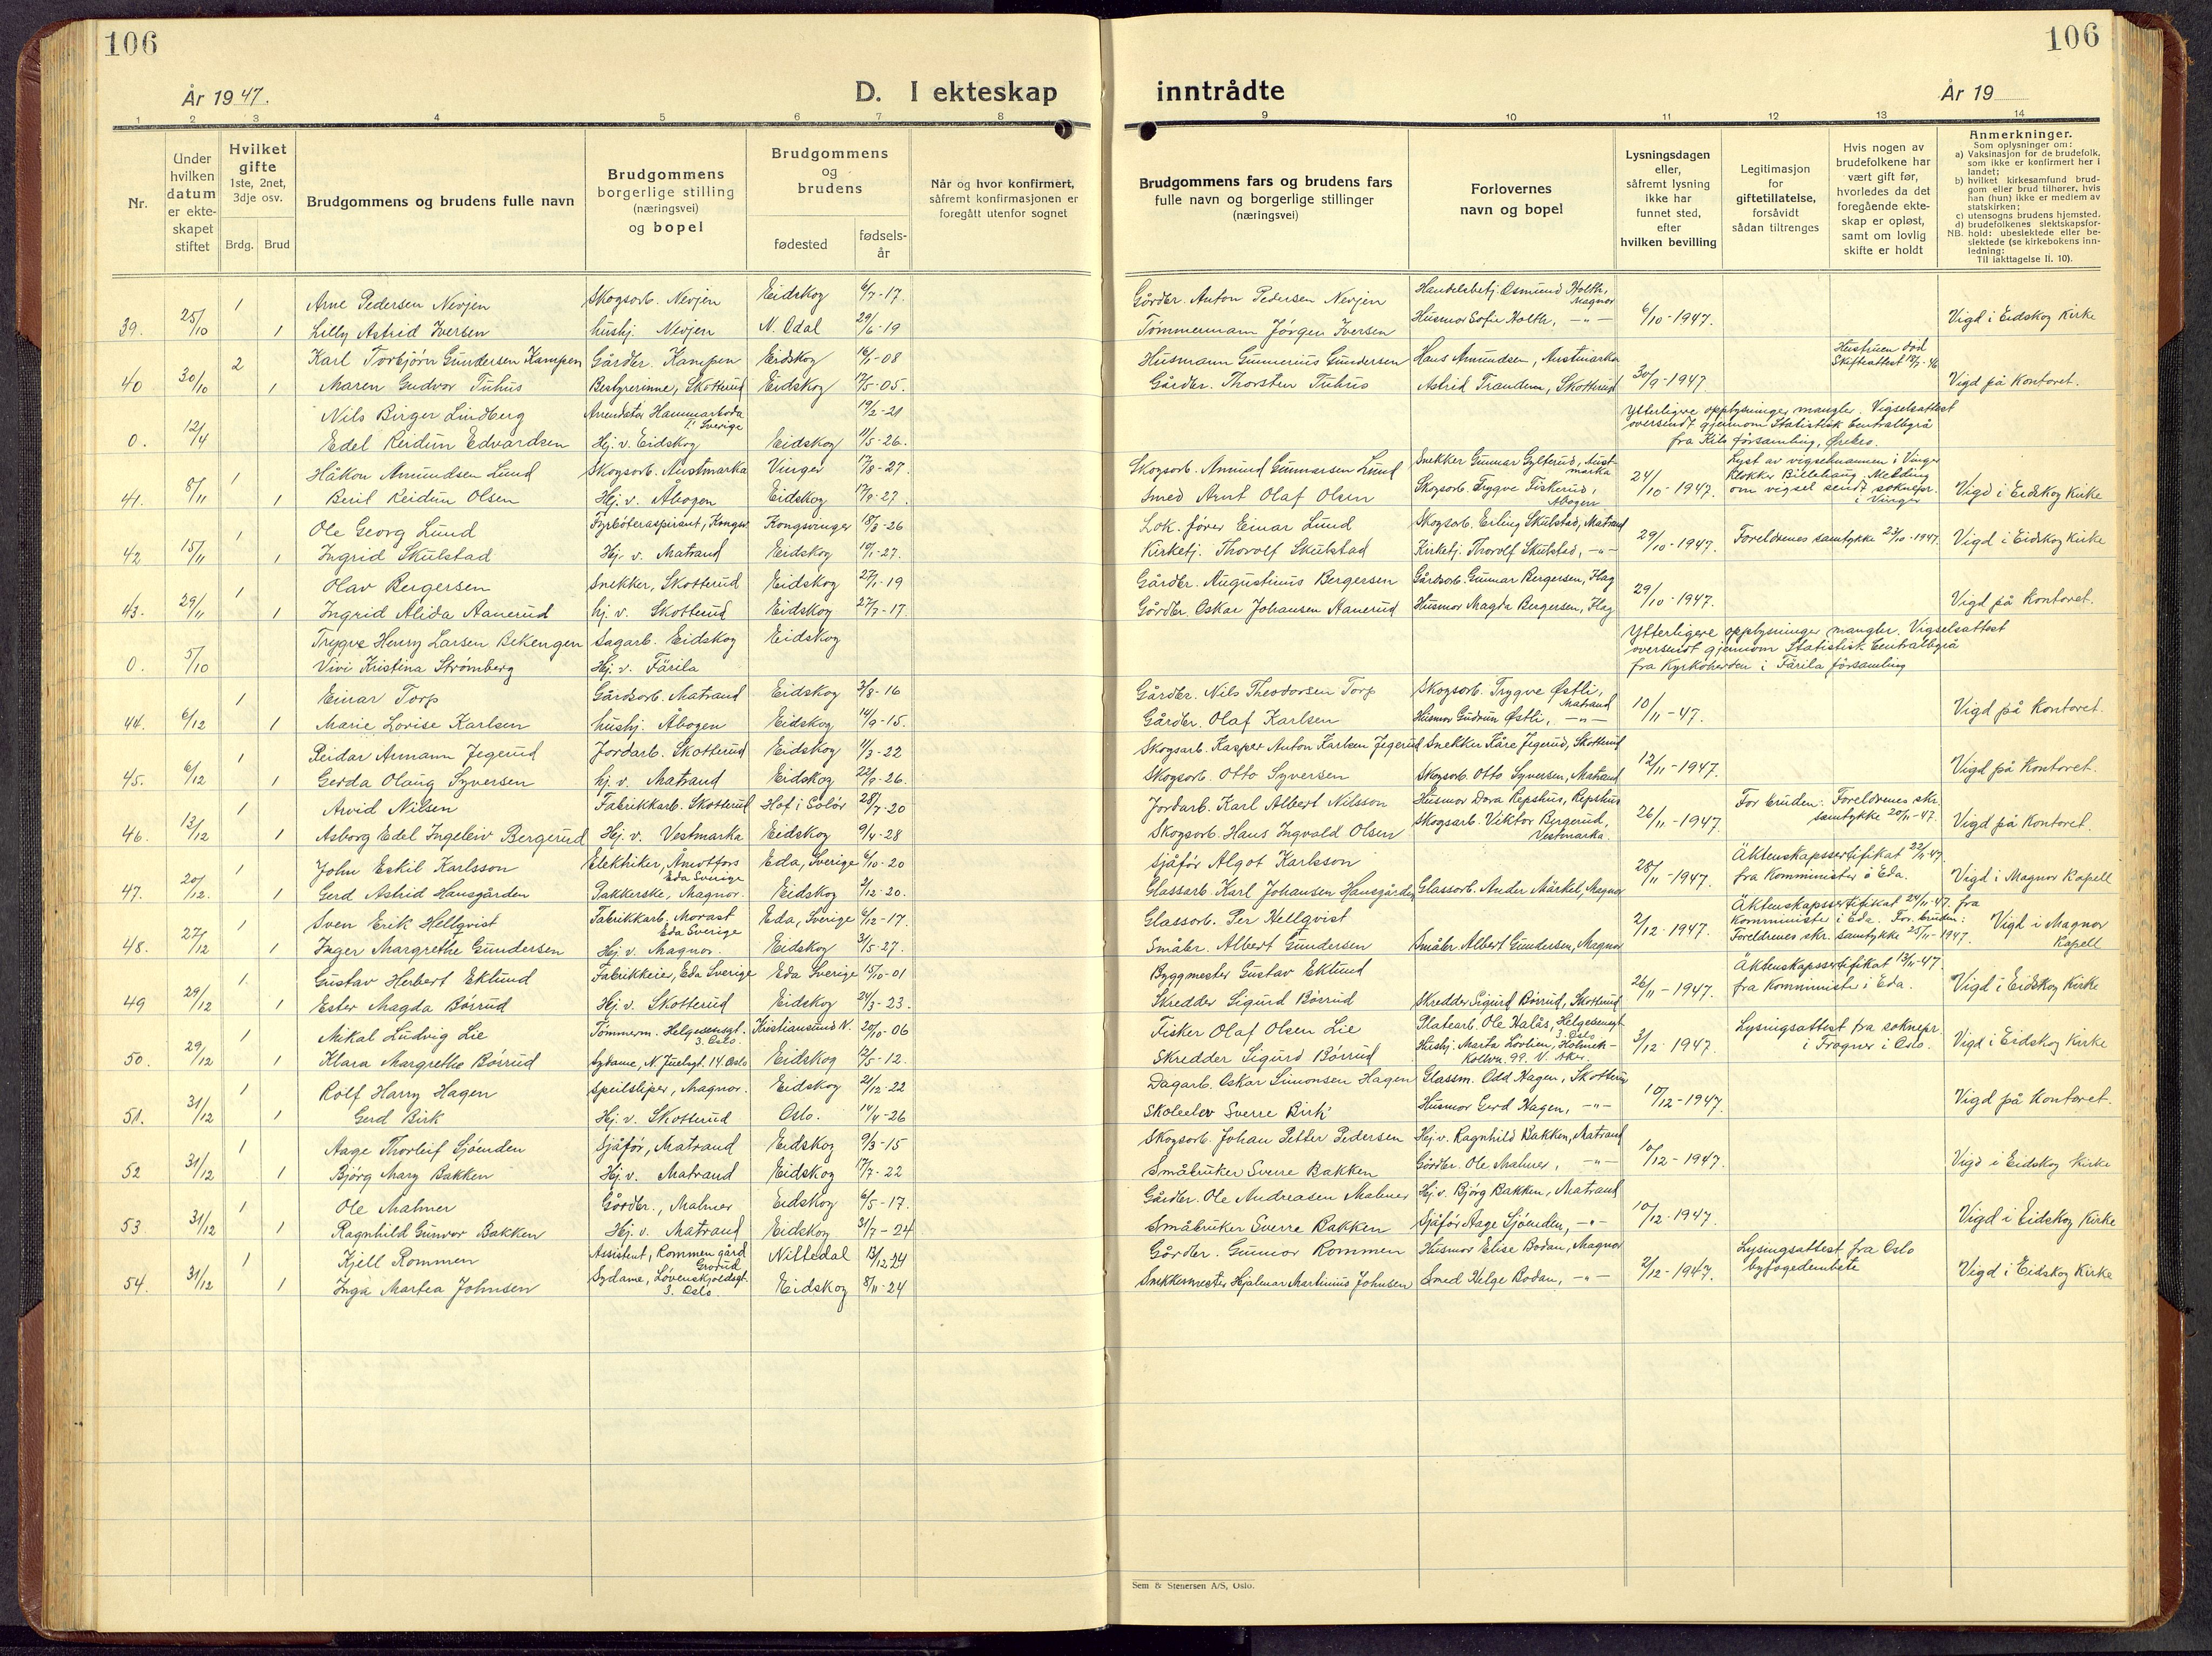 106
106
År 1947.
D. I ekteskap inntrådte
År 19
1 2 3 4 5 6 7 8 9 10 11 12 13 14
Nr.
Under hvilken datum er ekteskapet stiftet
Hvilket gifte
1ste, 2net, 3dje osv.
Brdg. Brud
Brudgommens og brudens fulle navn
Brudgommens borgerlige stilling (næringsvei) og bopel
Brudgommens og brudens
fødested
fødselsår
Når og hvor konfirmert, såfremt konfirmasjonen er foregått utenfor sognet
Brudgommens fars og brudens fars fulle navn og borgerlige stillinger (næringsvei)
Forlovernes navn og bopel
Lysningsdagen eller, såfremt lysning ikke har funnet sted, efter hvilken bevilling
Legitimasjon for giftetillatelse, forsåvidt sådan tiltrenges
Hvis nogen av brudefolkene har vært gift før, hvorledes da det foregående ekteskap er opløst, samt om lovlig skifte er holdt
Anmerkninger.
Som oplysninger om:
a) Vaksinasjon for de brudefolk, som ikke er konfirmert her i landet;
b) hvilket kirkesamfund brudgom eller brud tilhører, hvis han (hun) ikke er medlem av statskirken;
c) utensogns brudens hjemsted.
d) brudefolkenes slektskapsforhold: ubeslektede eller beslektede (se kirkebokens innledning:
NB.
Til iakttagelse II. 10).
1 Arne Pedersen Nevjen Skogsarb. Nevjen Eidskog 6/7-17. Gårdbr. Anton Pedersen Nevjen Handelsbetj. Osmund Holth, Magnor
39. 25/10 1 Lilly Astrid Iversen hushj. Nevjen N. Odal 29/6-19 Tømmermann Jørgen Iversen Husmor Sofie Holth, -"- 6/10-1947. Vigd i Eidskog Kirke
2 Karl Torbjørn Gundersen Kampen Gårdbr. Kampen Eidskog 16/1-08 Husmann Gunnerius Gundersen Hans Amundsen, Austmarka Hustruen død Skifteattest
40 30/10 1 Maren Gudvor Tuhus Bestyrerinne, Skotterud Eidskog 17/5-05. Gårdbr. Thorsten Tuhus Astrid Trandem, Skotterud 30/9-1947. Vigd på Kontoret.
Nils Birger Lindberg Arrendator Hammarboda i Sverige 19/2-21 Ytterligere opplysninger mangler. Vigselsattest
0. 12/4 Edel Reidun Edvardsen Hj. v. Eidskog Eidskog 11/5-26. oversendt gjennom Statistisk Centralbyrå
fra Kils församling, Örebro.
1 Håkon Amundsen Lund Skogsarb. Austmarka Vinger 17/8-27. Skogsarb. Amund Gunnarsen Lund Snekker Gunnar Gylterud, Austmarka Lyst av vigselmannen i Vinger
41. 8/11 1 Beril Reidun Olsen Hj. v. Åbogen Eidskog 17/9-27. Smed Arnt Olaf Olsen Skogsarb. Trygve Fiskerud, Åbogen 24/10-1947. Klokker Bildshaug. Melding om vigsel sendt soknepr. i Vinger Vigd i Eidskog Kirke
1 Ole Georg Lund Fyrbøteraspirant, Kongsv. Kongsvinger 18/3-26 Lok. fører Einar Lund Skogsarb. Erling Skulstad, Matrand
42 15/11 1 Ingrid Skulstad Hj. v. Matrand Eidskog 10/1-27. Kirketj. Thorolf Skulstad Kirketj. Thorolf Skulstad, -"- 29/10-1947. Foreldrenes samtykke 27/10-1947. Vigd i Eidskog Kirke
1 Olav Bergersen Snekker, Skotterud Eidskog 27/1-19 Gårdbr. Augustinus Bergersen Gårdsarb. Gunnar Bergersen, Flag
43. 29/11 1 Ingrid Alida Aanerud hj. v. Skotterud Eidskog 27/7-17. Gårdbr. Oskar Johansen Aanerud Husmor Magda Bergersen, Flag 29/10-1947. Vigd på Kontoret.
Trygve Henry Larsen Bekengen Sagarb. Eidskog Eidskog Ytterligere opplysninger mangler. Vigselsattest
0. 5/10 Vivi Kristina Strømberg Hj. v. Färila oversendt gjennom Statistisk Centralbyrå
fra Kyrkoherden i Färila församling
1 Einar Torp Gårdsarb. Matrand Eidskog 3/8-16 Gårdbr. Nils Theodorsen Torp Skogsarb. Trygve Østli, Matrand
44. 6/12 1 Marie Lovise Karlsen hushj. Åbogen Eidskog 14/9-15. Gårdbr. Olaf Karlsen Husmor Gudrun Østli, -"- 10/11-47. Vigd på Kontoret.
1 Reidar Armann Jegerud Jordarb. Skotterud Eidskog 11/3-22 Skogsarb. Kasper Anton Karlsen Jegerud Snekker Kåre Jegerud, Skotterud
45. 6/12 1 Gerda Olaug Syversen hj. v. Matrand Eidskog 22/9-26. Skogsarb. Otto Syversen Skogsarb. Otto Syversen, Matrand 12/11-1947. Vigd på Kontoret.
1 Arvid Nilsen Fabrikkarb. Skotterud Hof i Solør 28/7-20 Jordarb. Karl Albert Nilsson Husmor Dora Repshus, Repshus For bruden: Foreldrenes skr.
46. 13/12 1 Asborg Edel Ingeleiv Bergerud Hj. v. Vestmarka Eidskog 9/4-28 Skogsarb. Hans Ingvald Olsen Skogsarb. Viktor Bergerud, Vestmarka. 26/11-1947. samtykke 20/11-47. Vigd på Kontoret.
1 John Eskil Karlsson Elektriker, Åmotfors Eda Sverige Eda, Sverige 6/10-20 Sjåfør Algot Karlsson Äktenskapssertifikat 22/11-47
47. 20/12. 1 Gerd Astrid Hansgården Pakkerske, Magnor. Eidskog 2/12-20. Glassarb. Karl Johansen Hansgården Glassarb. Ander Märkel, Magnor 28/11-1947. fra Komminister i Eda. Vigd i Magnor Kapell
1 Sven Erik Hellqvist Fabrikkarb. Morast Eda Sverige Eda, Sverige 6/12-17. Glassarb. Per Hellqvist Äktenskapssertifikat 24/11-47. fra
48. 27/12 1 Inger Margrethe Gundersen Hj. v. Magnor. Eidskog 31/5-27. Småbr. Albert Gundersen Småbr Albert Gundersen, Magnor 2/12-1947. Komminister i Eda. For bruden: Foreldrenes skr. samtykke 25/11-1947. Vigd i Magnor Kapell
1. Gustav Herbert Eklund Fabrikkeier, Eda Sverige Eda Sverige 15/10-01 Byggmester Gustav Eklund Äktenskapssertifikat 13/11-47.
49 29/12 1 Ester Magda Børrud Hj. v. Skotterud Eidskog 24/3-23. Skredder Sigurd Børrud Skredder Sigurd Børrud, Skotterud 26/11-1947. fra Komminister i Eda. Vigd i Eidskog Kirke
1 Mikal Ludvig Lie Tømmerm. Helgesensgt. 3. Oslo. Kristiansund N. 20/11-06 Fisker Olaf Olsen Lie Platearb. Ole Halås, Helgesensgt 3. Oslo Lysingsattest fra soknepr.
50. 29/12 1 Klara Margrethe Børrud Sydame, N. Juelsgt. 14. Oslo Eidskog 12/5-12. Skredder Sigurd Børrud Hushj. Marta Løvlien, 99. V. Aker. 3/12-1947. i Frogner i Oslo. Vigd i Eidskog Kirke
1 Rolf Harry Hagen Speilsliper, Magnor. Eidskog 21/12-22 Dagarb. Oskar Simonsen Hagen Glassm. Odd Hagen, Skotterud
51. 31/12 1 Gerd Birk Hj. v. Skotterud Oslo. 14/4-26 Skoleelev Sverre Birk Husmor Gerd Hagen, -"- 10/12-1947. Vigd på Kontoret.
1 Aage Thorleif Sjøenden Sjåfør, Matrand Eidskog 9/3-15 Skogsarb. Johan Petter Pedersen Hj. v. Ragnhild Bakken, Matrand
52 31/12 1 Bjørg Mary Bakken Hj. v. Matrand Eidskog 17/7-22 Småbruker Sverre Bakken Gårdbr. Ole Malmer, -"- 10/12-1947. Vigd i Eidskog Kirke
1 Ole Malmer Gårdbr., Malmer Eidskog 6/5-17. Gårdbr. Ole Andreasen Malmer Hj. v. Bjørg Bakken, Matrand
53 31/12 1 Ragnhild Gunvor Bakken Hj. v. Matrand Eidskog 31/7-24 Småbruker Sverre Bakken Sjåfør Aage Sjøenden, -"- 10/12-1947. Vigd i Eidskog Kirke
1 Kjell Rommen Assistent, Rommen gård Grorud Nittedal 13/12-24 Gårdbr. Gunnar Rommen Husmor Elise Bodan, Magnor Lysingsattest fra Oslo
54. 31/12 1 Inga Martea Johnsen Sydame, Løvenskjoldsgt. 3. Oslo Eidskog 8/11-24 Snekkermester Hjalmar Martinius Johnsen Smed Helge Bodan, -"- 2/12-1947. byfogedembete Vigd i Eidskog Kirke
Sem & Stenersen A/S, Oslo.